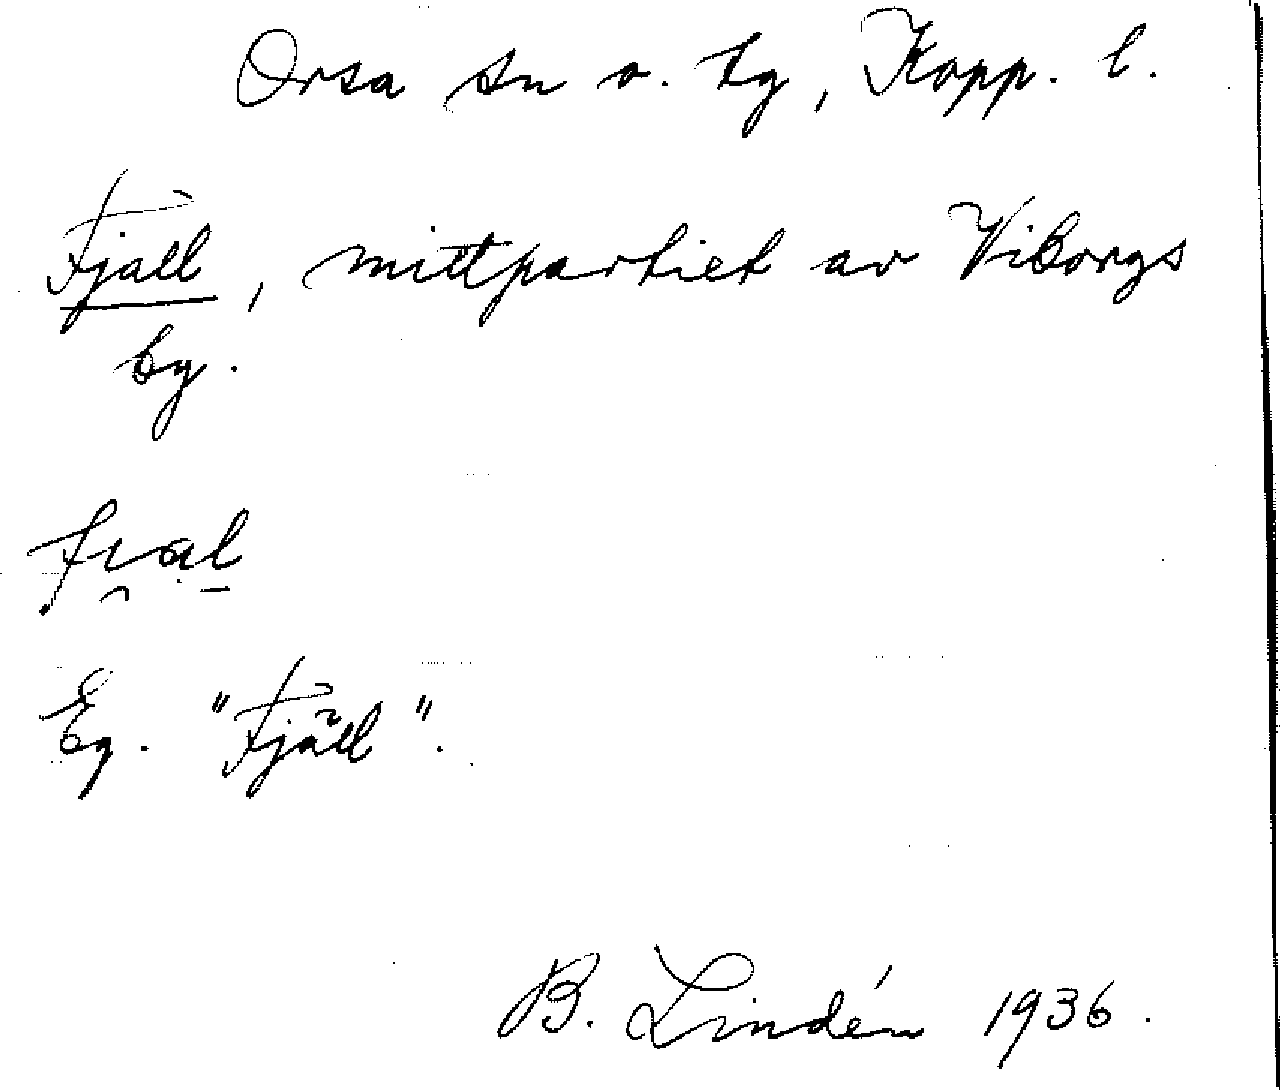 Orsa sn o. tg, Kopp. l.
Fjäll, mittpartiet av Viborgs
by.
Eg. "Fjäll".
B. Lindén 1936.